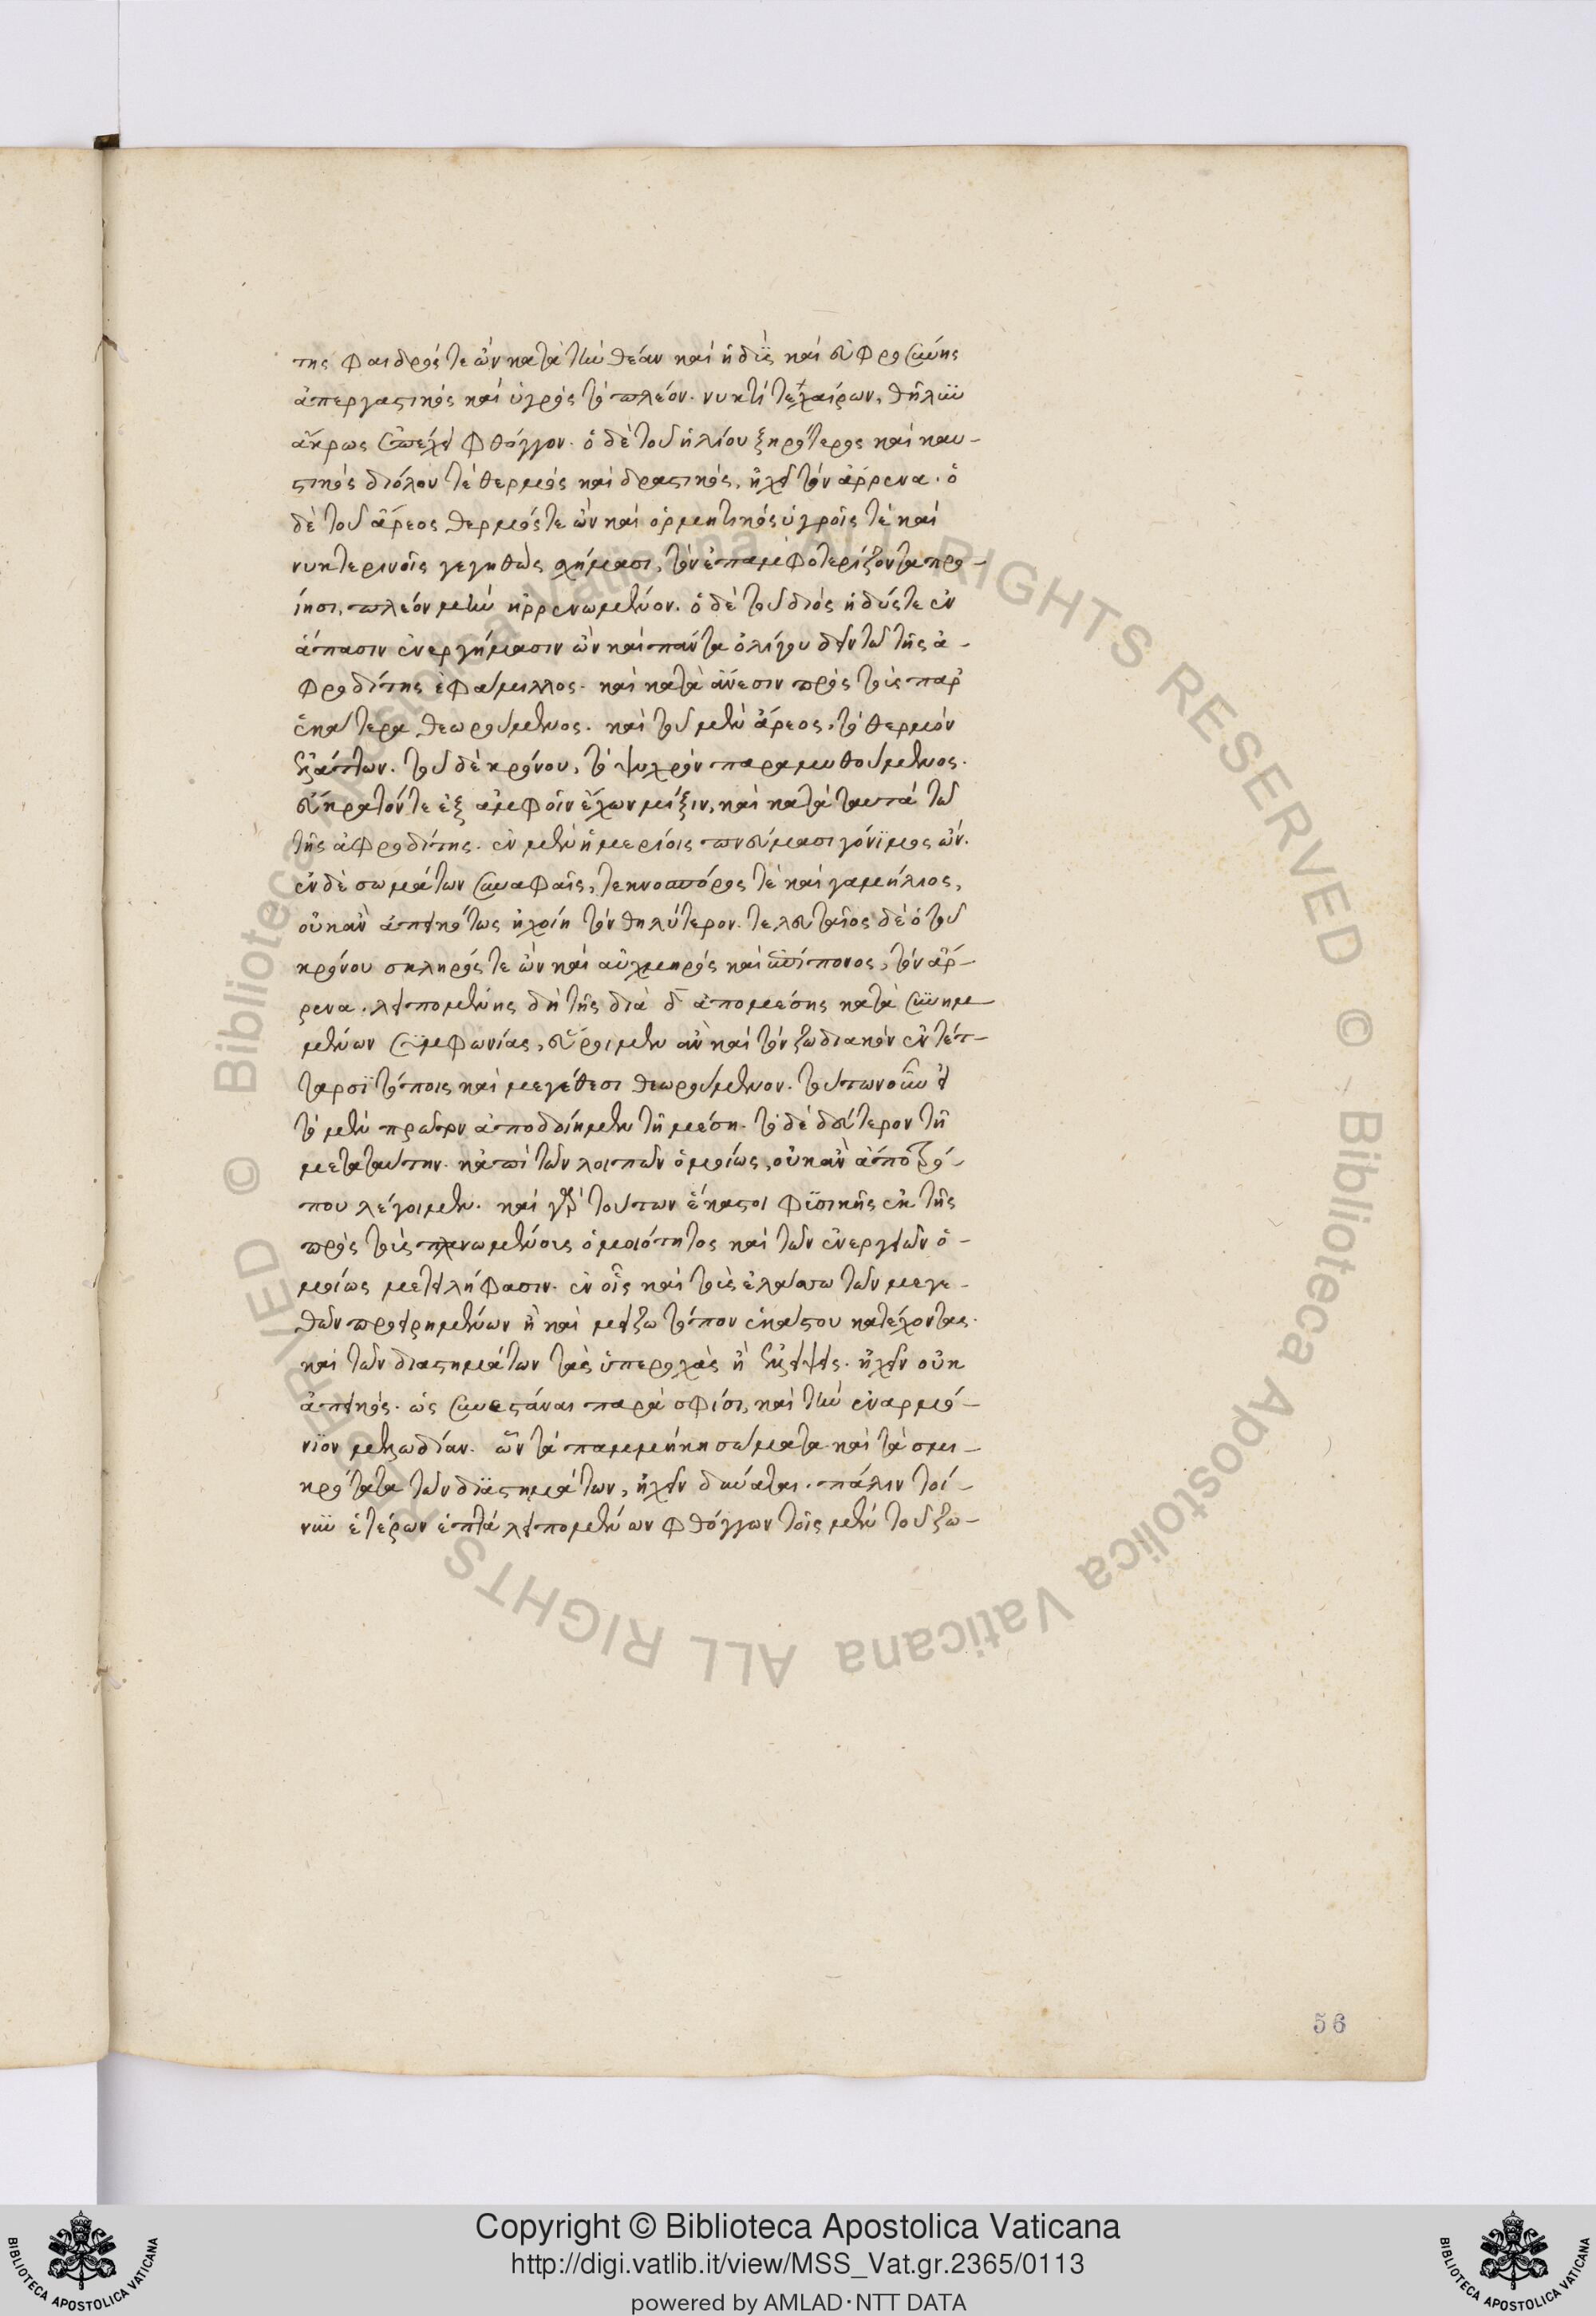 της φαιδρός τε ὢν κατὰ τὴν θέαν καὶ ἡδὺς καὶ εὐφροσύνης
ἀπεργαστικός καὶ ὑγρός τὸ πλέον. νυκτί τε χαίρων, θῆλυν
ἄκρως συνεχεῖ φθόγγον. ὁ δὲ τοῦ ἡλίου ξηρότερος καὶ καυ-
στικός διόλου τὲ θερμός καὶ δραστικός, ἠχεῖ τὸν ἄρρενα. ὁ
δὲ τοῦ ἄρεος θερμός τε ὢν καὶ ὁρμητικός ὑγροῖς τὲ καὶ
νυκτερινοῖς γεγηθὼς σχήμασι, τὸν ἐπαμφοτερίζοντα προ-
ίησι, πλέον μὲν ἠρρενωμένον. ὁ δὲ τοῦ διός ἡδύς τε ἐν
ἅπασιν ἐνεργήμασιν ὢν καὶ πάντα ὀλίγου δεῖν τῷ τῆς ἀ-
φροδίτης ἐφάμιλλος. καὶ κατὰ ἄνεσιν πρὸς τοὺς παρ'
ἑκάτερα θεωρούμενος. καὶ τοῦ μὲν ἄρεος, τὸ θερμόν
ἐξάπτων. τοῦ δὲ κρόνου, τὸ ψυχρὸν παραμυθούμενος.
εὔκρατόν τε ἐξ ἀμφοῖν ἔχων μίξιν, καὶ κατὰ ταυτὰ τῷ
τῆς ἀφροδίτης. ἐν μὲν ἡμερίοις πνεύμασι γόνιμος ὤν.
ἐν δὲ σωμάτων συναφαῖς, τεκνοσπόρος τὲ καὶ γαμήλιος,
οὐκ ἂν ἀπεικότως ἠχοίη τὸν θηλύτερον. τελευταῖος δὲ ὁ τοῦ
κρόνου σκληρός τε ὢν καὶ αὐχμηρός καὶ ἐπίπονος, τὸν ἄρ-
ρενα. λειπομένης δὴ τῆς διὰ δ ἀπομέσης κατὰ συνημ-
μένων συμφωνίας, εὕροιμεν ἂν καὶ τὸν ζωδιακὸν ἐν τέτ-
ταρσι τόποις καὶ μεγέθεσι θεωρούμενον. τούτων οὖν εἰ
τὸ μὲν πρῶτον ἀποδοίημεν τῇ μέσῃ. τὸ δὲ δεύτερον τῇ
μεταταύτην. κἀπὶ τῶν λοιπῶν ὁμοίως, οὐκ ἂν ἀπὸ τρό-
που λέγοιμεν. καὶ γὰρ τούτων ἕκαστοι φυσικῆς ἐκ τῆς
πρὸς τοὺς πλανωμένους ὁμοιότητος καὶ τῶν ἐνεργειῶν ὁ-
μοίως μετειλήφασιν. ἐν οἷς καὶ τοὺς ἐλάττω τῶν μεγε-
θῶν προειρημένων ἢ καὶ μείζω τόπον ἑκάστου κατέχοντας.
καὶ τῶν διαστημάτων τὰς ὑπεροχὰς ἢ ἐλλείψεις. ἠχεῖν οὐκ
ἀπεικός. ὡς συνεστάναι παρὰ σφίσι, καὶ τὴν ἐναρμό-
νιον μελωδίαν. ὧν τὰ παμμήκη σώματα καὶ τὰ σμι-
κρότατα τῶν διαστημάτων, ἠχεῖν δύναται. πάλιν τοί-
νυν ἑτέρων ἑπτὰ λειπομένων φθόγγων τοῖς μὲν τοῦ ζω-
56
Copyright © Biblioteca Apostolica Vaticana
http://digi.vatlib.it/view/MSS_Vat.gr.2365/0113
powered by AMLAD·NTT DATA